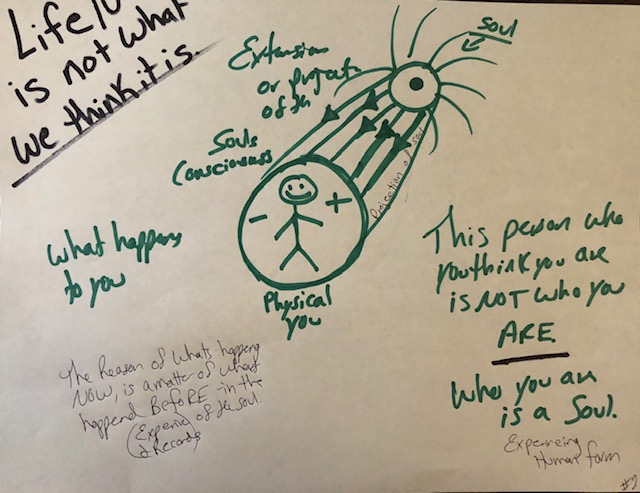 Life/
is not what
we think it is.
Soul
Extension
or projectn
of the
Souls
Consciousness
Projection of soul
-
+
Physical
you
what happens
to you
This person who
you think you are
is NOT who you
ARE
Who you are
is a Soul.
Experiencing
Human form
The Reason of whats happening
NOW, is a matter of what
happened BEFORE in the
(Experience) of the soul.
& Records